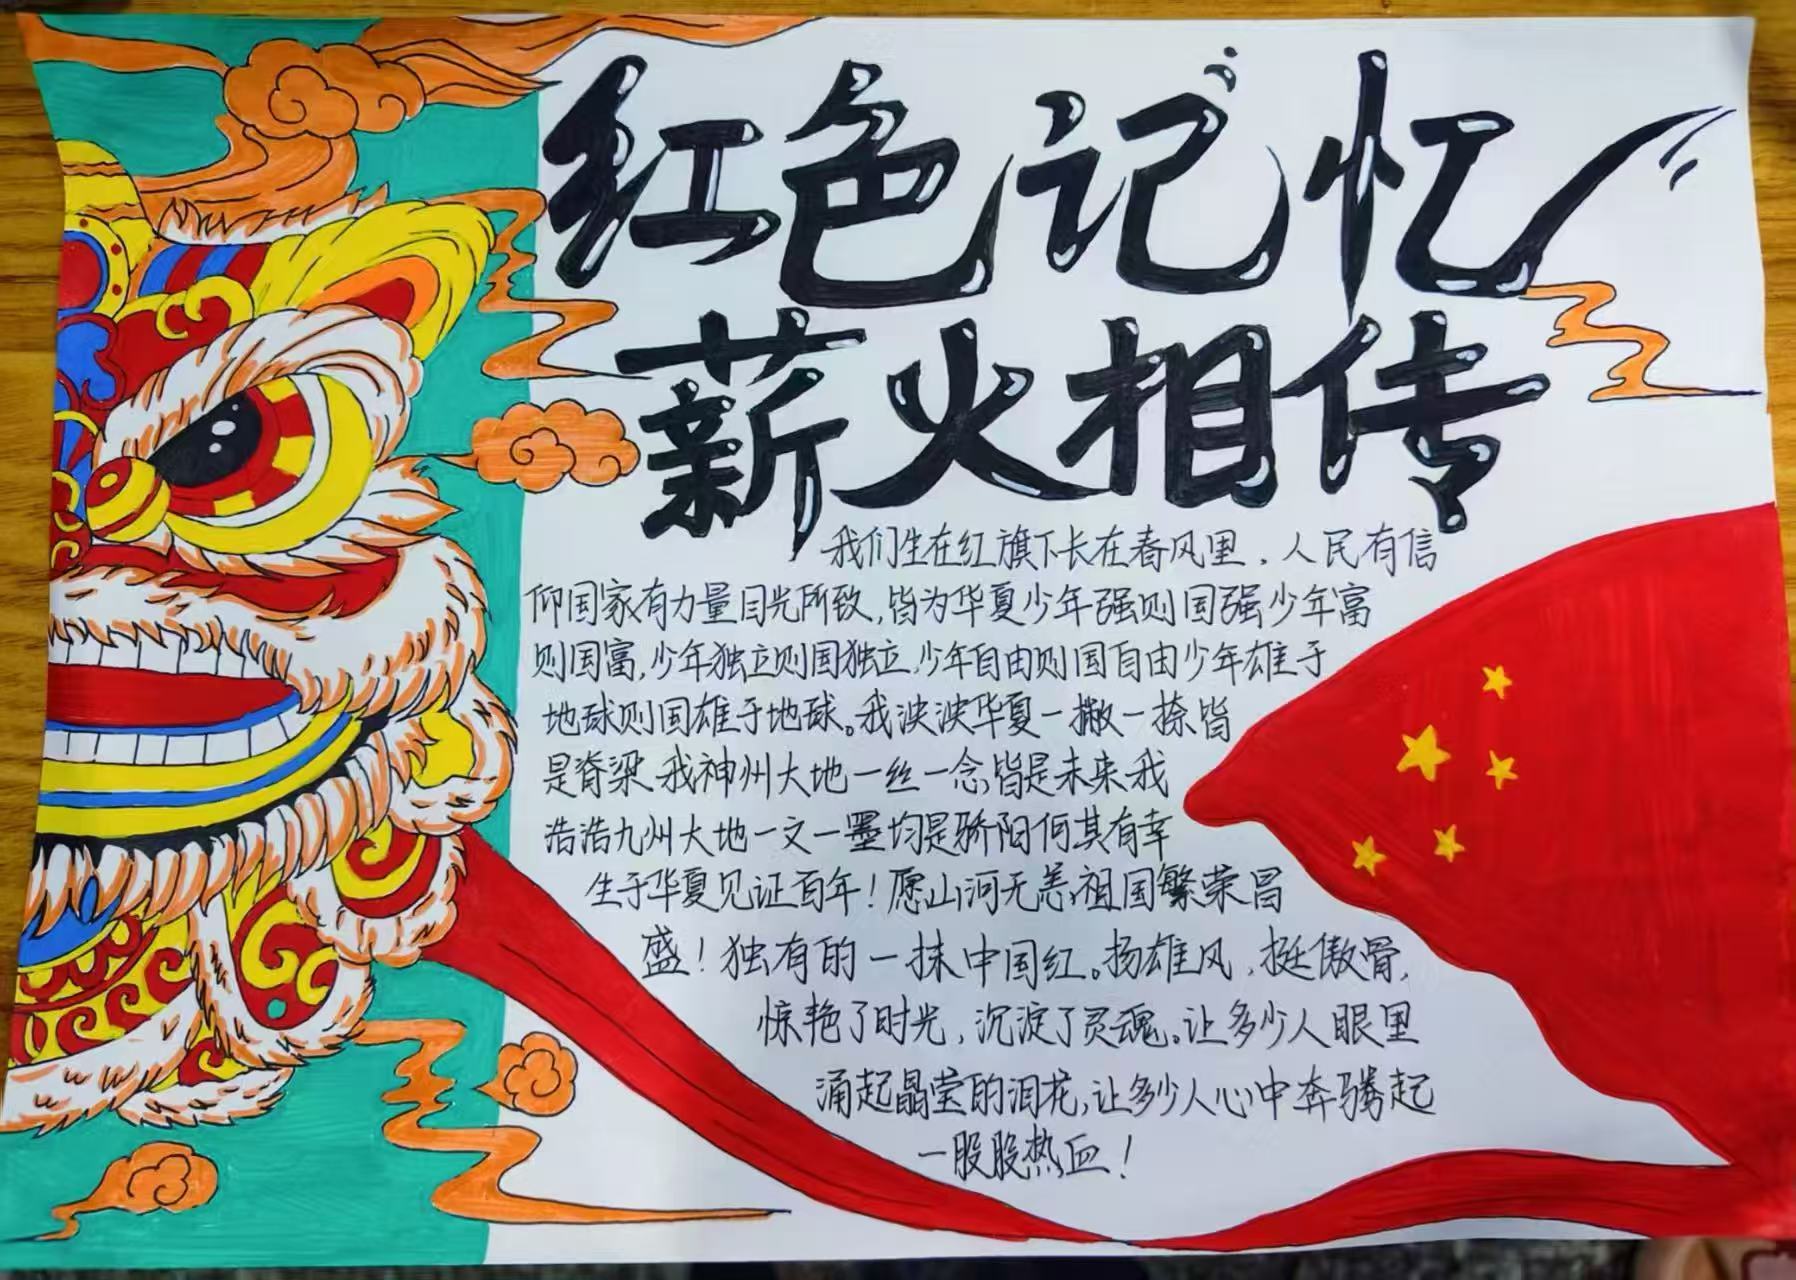 红色记忆
薪火相传
我们生在红旗下长在春风里,人民有信
仰国家有力量目光所致,皆为华夏少年强则国强少年富
则国富,少年独立则国独立,少年自由则国自由少年雄于
地球则国雄于地球。我泱泱华夏一撇一捺皆
是脊梁、我神州大地一丝一念,皆是未来、我
浩浩九州大地一文一墨均是骄阳何其有幸
生于华夏见证百年!愿山河无恙,祖国繁荣昌
盛!独有的一抹中国红。扬雄风,挺傲骨,
惊艳了时光,沉淀了灵魂。让多少人眼里
涌起晶莹的泪花,让多少人心中奔腾起
一股股热血!